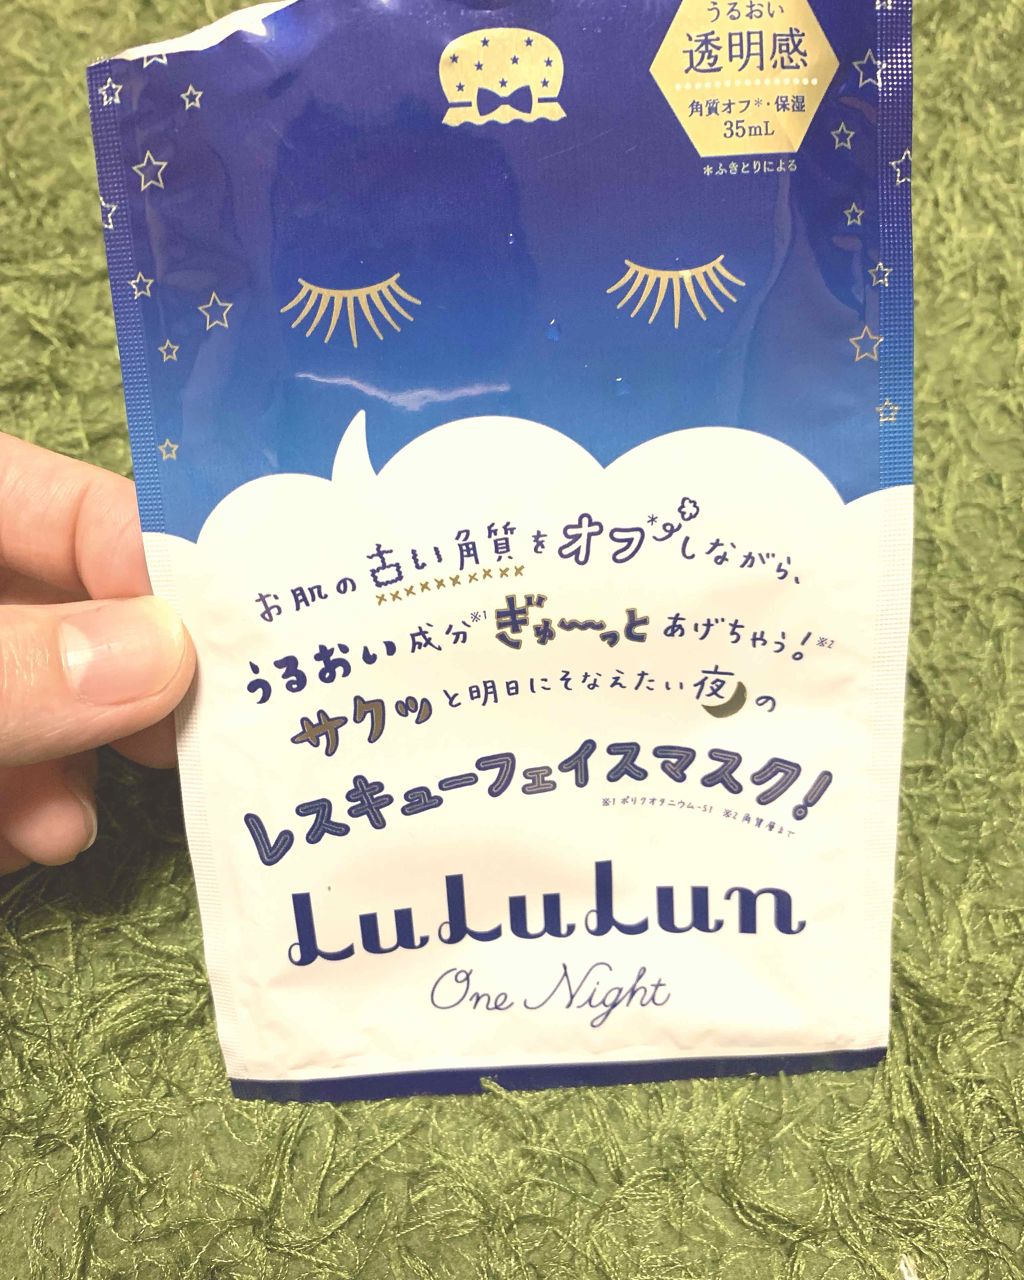 うるおい
透明感
角質オフ*・保湿
35mL
*ふきとりによる
お肌の古い角質をオフ*しながら、
うるおい成分※1ぎゅ〜っとあげちゃう!※2
サクッと明日にそなえたい夜の
レスキューフェイスマスク!
※1 ポリクオタニウム-51 ※2 角質層まで
LuLuLun
One Night